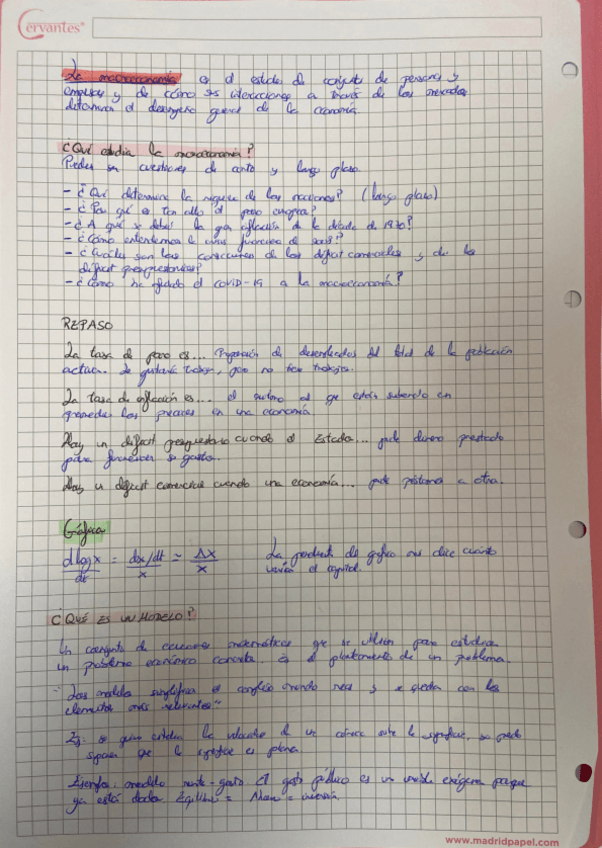 Cervantes
La macroeconomía es el estudio de conjunto de personas y
empresas y de cómo sus interacciones a través de los mercados
determinan el desempeño general de la economía.
¿Qué estudia la macroeconomía?
Pueden ser cuestiones de corto y largo plazo.
- ¿Qué determina la riqueza de las naciones? (largo plazo)
- ¿Por qué es tan alto el paro
- ¿A qué se debió la gran inflación de la década de 1970?
- ¿Cómo entendemos la crisis financiera de 2008?
- ¿Cuáles son las consecuencias de los déficit comerciales y de los
déficit presupuestarios?
- ¿Cómo ha afectado el COVID-19 a la macroeconomía?
REPASO
La tasa de paro es... Proporción de desempleados del total de la población
activa. Le gustaría trabajar, pero no tiene trabajo.
La tasa de inflación es... el al que están subiendo en
promedio los precios en una economía
Hay un déficit presupuestario cuando el Estado... pide dinero prestado
para financiar su gasto.
Hay un déficit comercial cuando una economía... pide préstamos a otra.
Gráfica
dlogx/dt = dx/dt/x ≈ Δx/x La pendiente de gráfico nos dice cuánto
varía el capital.
¿QUÉ ES UN MODELO?
Un conjunto de ecuaciones matemáticas que se utilizan para estudiar
un problema económico concreto. Es el planteamiento de un problema.
"Los modelos simplifican el complejo mundo real y se quedan con los
elementos más relevantes"
Ej: se quiere estudiar la velocidad de un sobre la superficie, se puede
suponer que la superficie es plana.
Ejemplo: modelo renta-gasto El gasto público es un variable exógena porque
ya está dada. Equilibrio = Ahorro = inversión.
www.madridpapel.com